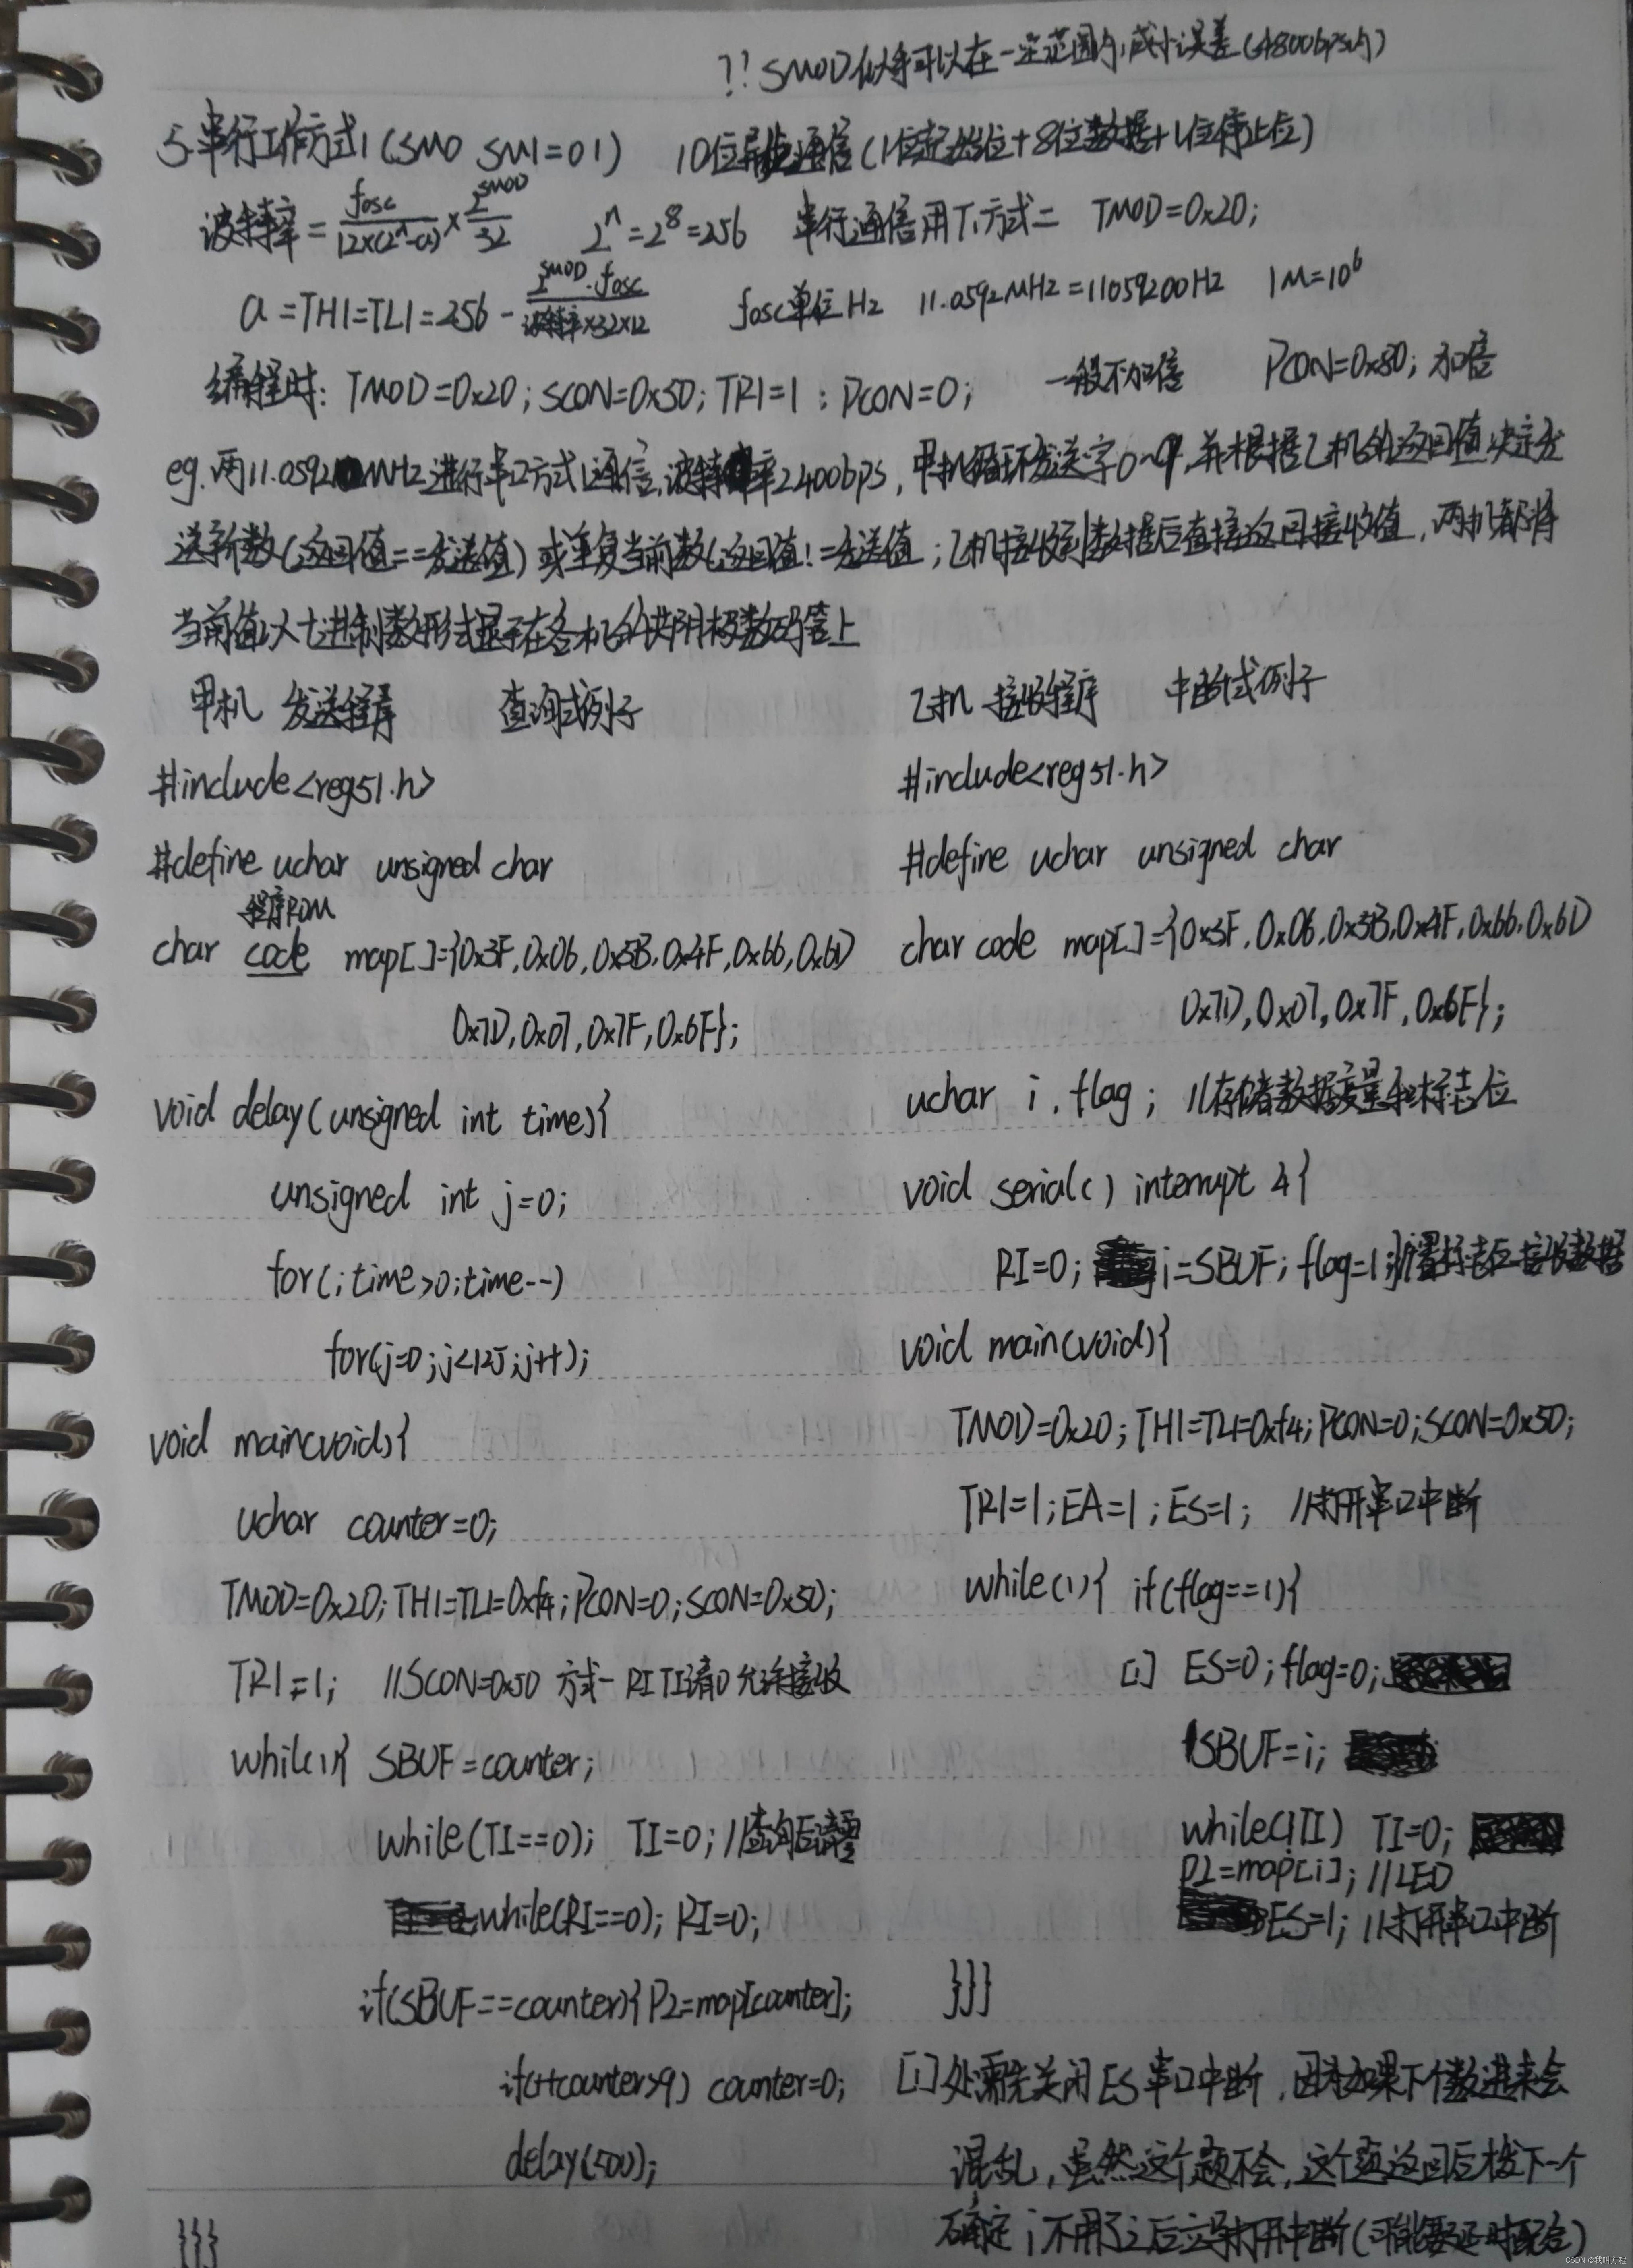 ?? SMOD似乎可以在一定范围内减小误差(4800bps时)
5.串行工作方式1(SM0 SM1=01) 10位异步通信(1位起始位+8位数据+1位停止位)
波特率=fosc/12×(2^n-a)×2^SMOD/32 2^n=2^8=256 串行通信用T1方式二 TMOD=0x20;
a=TH1=TL1=256-2^SMOD·fosc/波特率×32×12 fosc单位Hz 11.0592MHz=11059200Hz 1M=10^6
编程时: TMOD=0x20; SCON=0x50; TR1=1; PCON=0; 一般不加倍 PCON=0x80; 加倍
eg.两11.0592MHz进行串口方式1通信,波特率2400bps,甲机循环发送字0~9,并根据乙机的返回值决定发
送新数(返回值==发送值)或重复当前数(返回值!=发送值;乙机接收到数据后直接返回接收值,两机都将
当前值以十进制数形式显示在各机的共阴极数码管上
甲机 发送程序 查询式例子
#include<reg51.h>
#define uchar unsigned char
程序ROM
char code map[]={0x3F,0x06,0x5B,0x4F,0x66,0x6D
0x7D,0x07,0x7F,0x6F};
void delay(unsigned int time){
unsigned int j=0;
for(;time>0;time--)
for(j=0;j<125;j++);
void main(void){
uchar counter=0;
TMOD=0x20;TH1=TL1=0xf4;PCON=0;SCON=0x50;
TR1=1; //SCON=0x50 方式一 RI TI清0 允许接收
while(1){ SBUF=counter;
while(TI==0); TI=0; //查询后清零
while(RI==0); RI=0;
if(SBUF==counter){P2=map[counter];
if(++counter>9) counter=0;
delay(500);
}}}
乙机 接收程序 中断式例子
#include<reg51.h>
#define uchar unsigned char
char code map[]={0x3F,0x06,0x5B,0x4F,0x66,0x6D
0x7D,0x07,0x7F,0x6F};
uchar i,flag; //存储数据变量和标志位
void serial() interrupt 4{
RI=0; i=SBUF; flag=1;}//置标志后接收数据
void main(void){
TMOD=0x20;TH1=TL1=0xf4;PCON=0;SCON=0x50;
TR1=1;EA=1;ES=1; //打开串口中断
while(1){ if(flag==1){
[1] ES=0;flag=0;
SBUF=i;
while(!TI) TI=0;
P2=map[i]; //LED
ES=1; //打开串口中断
}}}
[1]处需先关闭ES串口中断,因为如果下个数进来会
混乱,虽然这个题不会,这个题返回后发下一个
确定i不用了之后立即打开中断(可能要延时配合)
CSDN @我叫方程